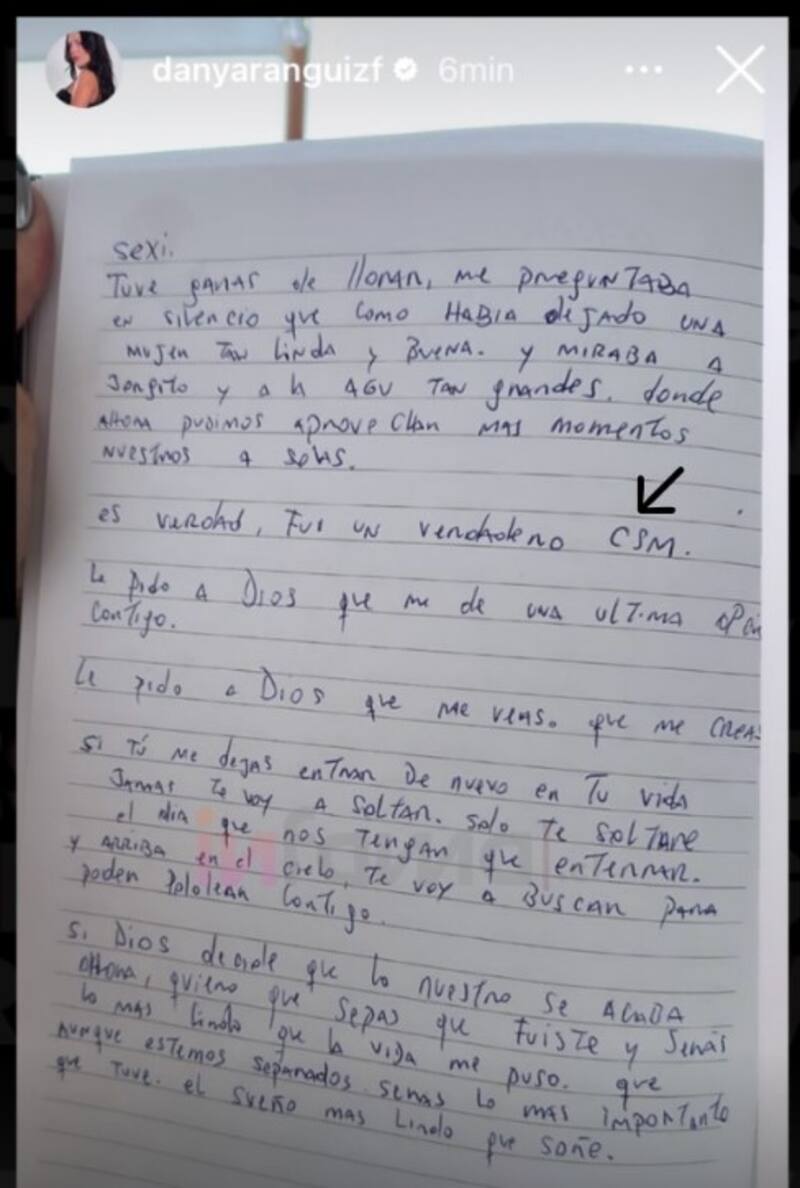 danyaranguizf 6min
sexi.
Tuve ganas de lloran, me pregunTABA
en silencio que como HABIA dejado UNA
mujen TAN linda y BUENA. y MIRABA A
Jorgito y a la AGU TAN grandes. donde
AHORA pudimos aprovechan MAS momentos
nuestnos a solas.
es verdad, Fui UN verdadeno CSM.
Le pido A Dios que me de una ulTima
contigo.
Le pido a Dios que me veas. que me CREAS
si TÚ me dejas enTran De nuevo en Tu vida
Jamas Te voy A SolTAR. solo Te SolTARE
el dia que nos Tengan que enTERRAR.
y ARRIBA en el cielo, Te voy A BUSCAR PARA
poden Pololean ConTigo.
si Dios decide que lo nuesTro se ACABA
AHORA, quieno que sepas que Fuiste y Senás
lo mas lindo que la viDA me puso. que
Aunque estemos sepanados senas lo mas impORTante
que Tuve. el sueño mas lindo que soñe.
infama